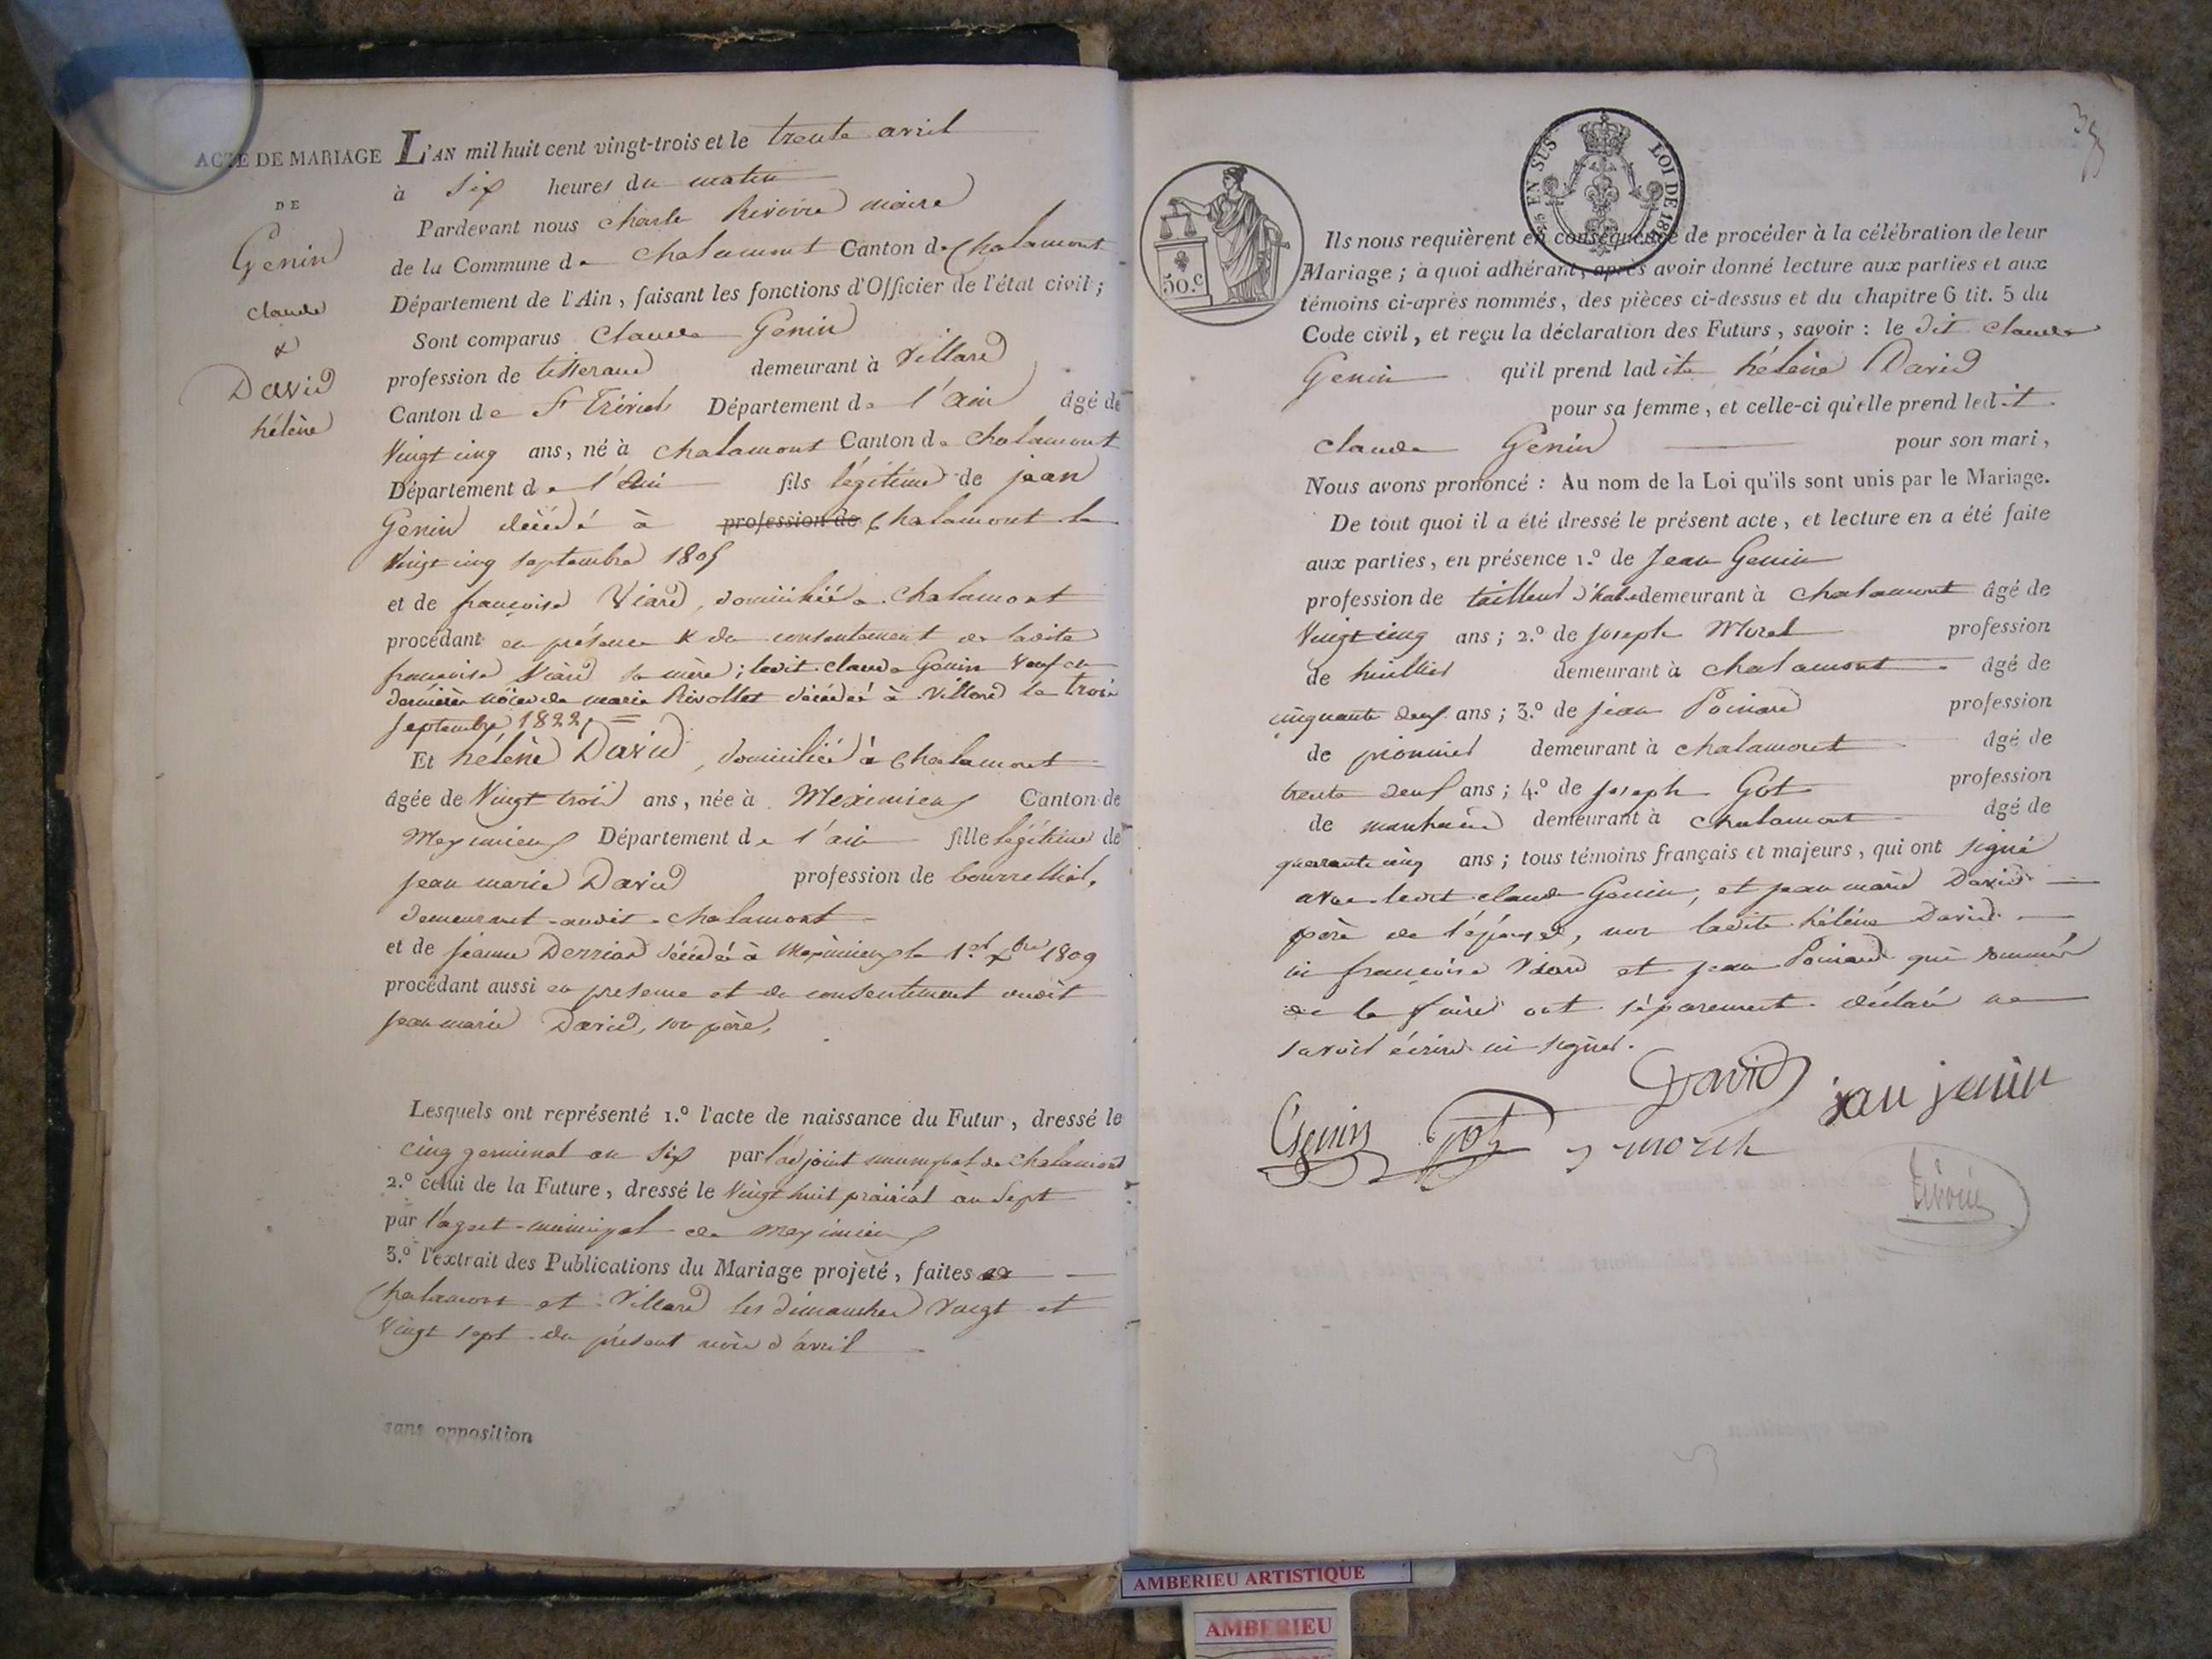 ACTE DE MARIAGE
DE
Genin
claude
&
David
hélène
L'AN mil huit cent vingt-trois et le trente avril
à six heures du matin
Pardevant nous charle Rivoire maire
de la Commune de chalamont Canton de Chalamont
Département de l'Ain, faisant les fonctions d'Officier de l'état civil;
Sont comparus Claude Genin
profession de tisserand demeurant à Villard
Canton de St Trivier Département de l'ain âgé de
Vingt cinq ans, né à chalamont Canton de chalamont
Département de l'ain fils légitime de jean
Genin décédé à profession de Chalamont le
Vingt cinq septembre 1805
et de françoise Viard, domiciliée a Chalamont
procédant en présence & du consentement de ladite
françoise Viard sa mère; ledit claude Genin veuf en
dernière nôces de marie Rivollet décédée à Villard le trois
septembre 1822, =
Et hélène David, domiciliée à Chalamont
âgée de Vingt trois ans, née à Meximieux Canton de
Meximieux Département de l'ain fille légitime de
jean marie David profession de bourrellier,
demeurant audit chalamont
et de jeanne Derriad décédée à Meximieux le 1er Xbre 1809
procédant aussi en presence et du consentement dudit
jean marie David, son père,
Lesquels ont représenté 1.º l'acte de naissance du Futur, dressé le
cinq germinal an six par l'adjoint municipal de Chalamont
2.º celui de la Future, dressé le Vingt huit prairial an sept
par l'agent municipal de Meximieux
3.º l'extrait des Publications du Mariage projeté, faites
Chalamont et Villard les dimanches vingt et
Vingt sept du présent mois d'avril
sans opposition
EN SUS LOI DE 18
50.c
Ils nous requièrent en conséquence de procéder à la célébration de leur
Mariage; à quoi adhérant, après avoir donné lecture aux parties et aux
témoins ci-après nommés, des pièces ci-dessus et du chapitre 6 tit. 5 du
Code civil, et reçu la déclaration des Futurs, savoir: le dit claude
Genin qu'il prend ladite hélène David
pour sa femme, et celle-ci qu'elle prend ledit
claude Genin pour son mari,
Nous avons prononcé: Au nom de la Loi qu'ils sont unis par le Mariage.
De tout quoi il a été dressé le présent acte, et lecture en a été faite
aux parties, en présence 1.º de Jean Genin
profession de tailleur d'habits demeurant à chalamont âgé de
Vingt cinq ans; 2.º de joseph Morel profession
de huillier demeurant à chalamont âgé de
cinquante deux ans; 3.º de jean Poinard profession
de pionnier demeurant à chalamont âgé de
trente deux ans; 4.º de joseph Got profession
de demeurant à chalamont âgé de
quarante cinq ans; tous témoins français et majeurs, qui ont signé
avec ledit claude Genin, et jean marie David
père de l'épouse, non ladite hélène David
ni françoise Viard et jean Poinard qui sommés
de le faire ont séparément déclaré ne
savoir écrire ni signer.
David
jan jenin
Cgenin
Got
j morel
Rivoire
AMBERIEU ARTISTIQUE
AMBERIEU